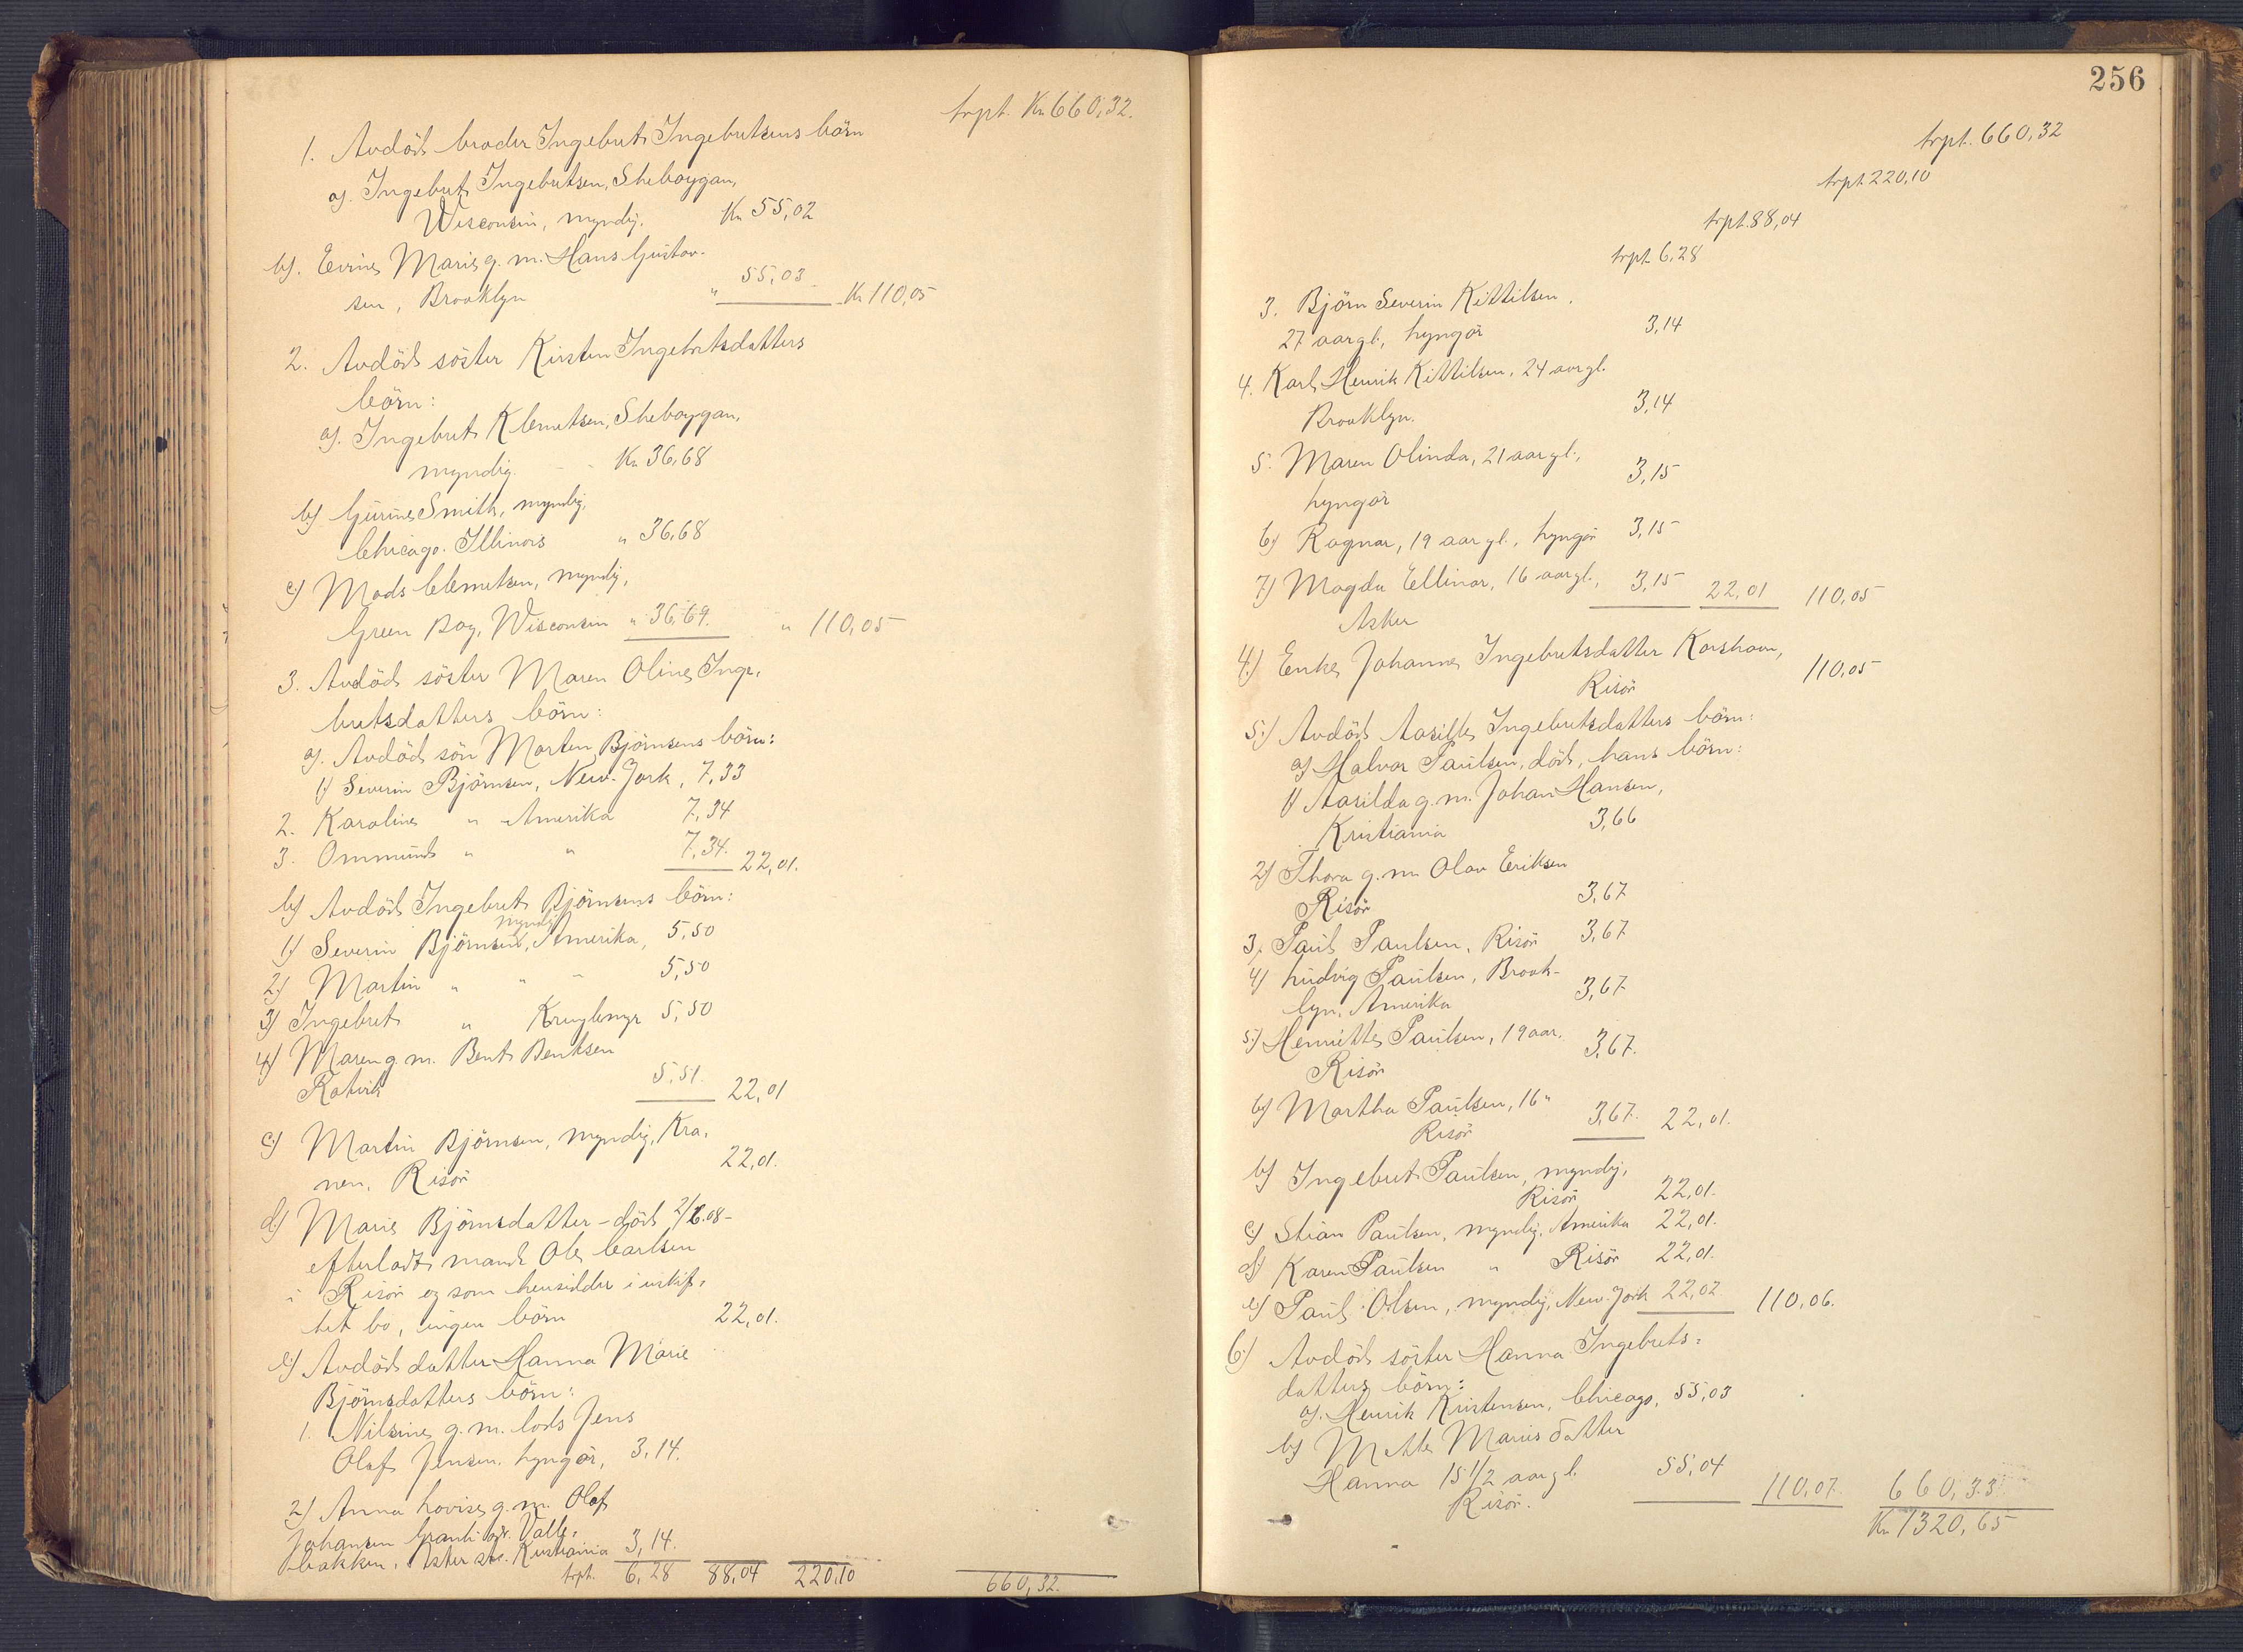 trpt. Kr 660,32.
1. Avdöd broder Ingebret Ingebretsens börn
a). Ingebret Ingebretsen, Sheboygan,
Wisconsin, myndig. Kr 55,02
b). Evine Marie g. m. Hans Gustav-
sen, Brooklyn " 55,03 Kr 110,05
2. Avdöd söster Kirsten Ingebretsdatters
börn:
a). Ingebret Klemetsen, Sheboygan,
myndig. - - Kr 36,68
b) Gurine Smith, myndig,
Chicago. Illinois " 36,68
c) Mads Clemetsen, myndig,
Green Bay, Wisconsin " 36,69. " 110,05
3. Avdöd söster Maren Oline Inge-
bretsdatters börn:
a). Avdöd sön Morten Björnsens börn:
1) Severin Björnsen, New-York, 7,33
2. Karoline " Amerika 7,34
3. Ommund " " 7,34. 22,01.
b) Avdöd Ingebret Björnsens börn:
myndig
1) Severin Björnsen, Amerika, 5,50
2) Martin " " - 5,50
3) Ingebret " Kruglemyr 5,50
4) Maren g. m. Bent Bentsen
5,51. 22,01
c) Martin Björnsen, myndig, Kra-
nen, Risör 22,01.
d) Marie Björnsdatter - död 2/6.08 -
efterladt mand Ole Carlsen
i Risör og som hensidder i uskif-
tet bo, ingen börn 22,01.
e) Avdöd datter Hanna Marie
Björnsdatters börn:
1. Nilsine g. m. lods Jens
Olaf Jensen. Lyngör, 3,14.
2) Anna Lovise g. m. Olaf
Johansen Granli pr. Valle-
bakken, Aker Kristiania 3,14.
trpt. 6,28 88,04 220,10 660,32.
256
trpt. 660,32
trpt 220,10
trpt. 88,04
trpt 6,28
3. Björn Severin Kittilsen.
27 aar gl., Lyngör 3,14
4. Karl Henrik Kittilsen, 24 aar gl.
Brooklyn. 3,14
5. Maren Olinda, 21 aar gl.,
Lyngör 3,15
6) Ragnar, 19 aar gl., Lyngör 3,15
7) Magda Ellinor, 16 aar gl., 3,15 22,01 110,05
Asker
4.) Enke Johanne Ingebretsdatter Korshavn,
Risör 110,05
5.) Avdöd Aasille Ingebretsdatters börn:
a) Halvor Paulsen, död, hans börn:
1) Aasilda g. m. Johan Hansen,
Kristiania 3,66
2) Thora g. m. Olav Eriksen
Risör 3,67
3, Paul Paulsen, Risör 3,67
4) Ludvig Paulsen, Brook-
lyn, Amerika 3,67
5) Henriette Paulsen, 19 aar,
Risör 3,67.
6) Martha Paulsen, 16 "
Risör 3,67. 22,01.
b) Ingebret Paulsen, myndig,
Risör 22,01.
c) Stian Paulsen, myndig, Amerika 22,01.
d) Karen Paulsen " Risör 22,01.
e) Paul Olsen, myndig, New-York 22,02 110,06.
6.) Avdöd söster Hanna Ingebrets-
datters börn:
a). Henrik Kristensen, Chicago, 55,03
b) Mette Maries datter
Hanna 15 1/2 aar gl. 55,04
Risör. 110,07. 660,33
Kr 1320,65